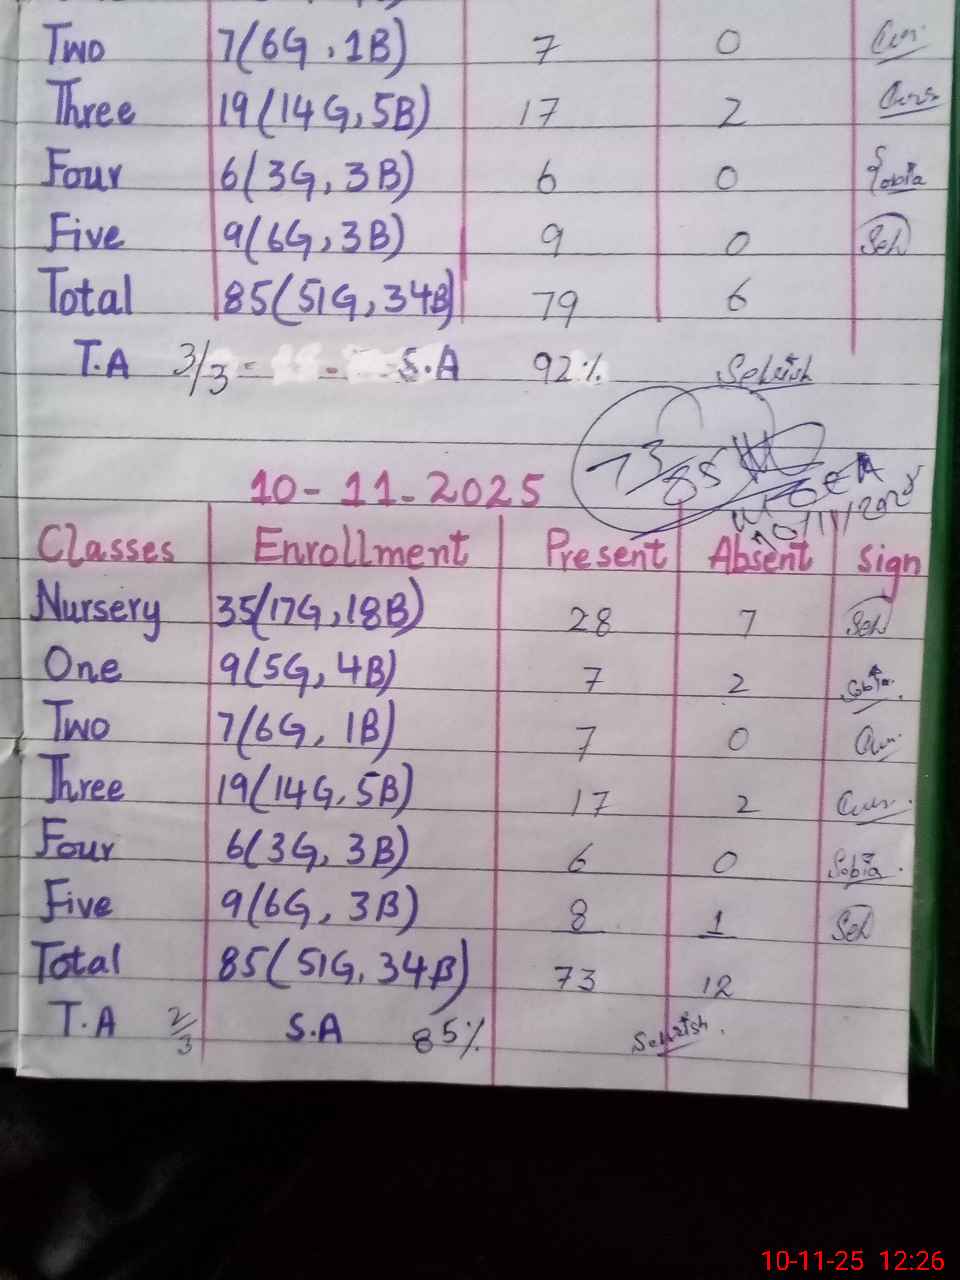 Two 7(6G, 1B) 7 0
Three 19(14G, 5B) 17 2
Four 6(3G, 3B) 6 0 Sobia
Five 9(6G, 3B) 9 0 Seh
Total 85(51G, 34B) 79 6
T.A 3/3 S.A 92% Sehrish
73/85
10-11-2025
10/11/2025
Classes Enrollment Present Absent Sign
Nursery 35(17G, 18B) 28 7 Seh
One 9(5G, 4B) 7 2 Sobia
Two 7(6G, 1B) 7 0
Three 19(14G, 5B) 17 2
Four 6(3G, 3B) 6 0 Sobia
Five 9(6G, 3B) 8 1 Seh
Total 85(51G, 34B) 73 12
T.A 2/3 S.A 85% Sehrish
10-11-25 12:26